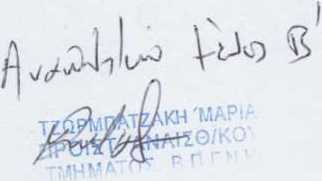 Αναπληρωματικό μέλος Β'
ΤΖΩΡΜΠΑΤΖΑΚΗ ΜΑΡΙΑ
ΠΡΟΙΣΤ. ΑΝΑΙΣΘ/ΚΟΥ
ΤΜΗΜΑΤΟΣ Β.Π.Γ.Ν.Η